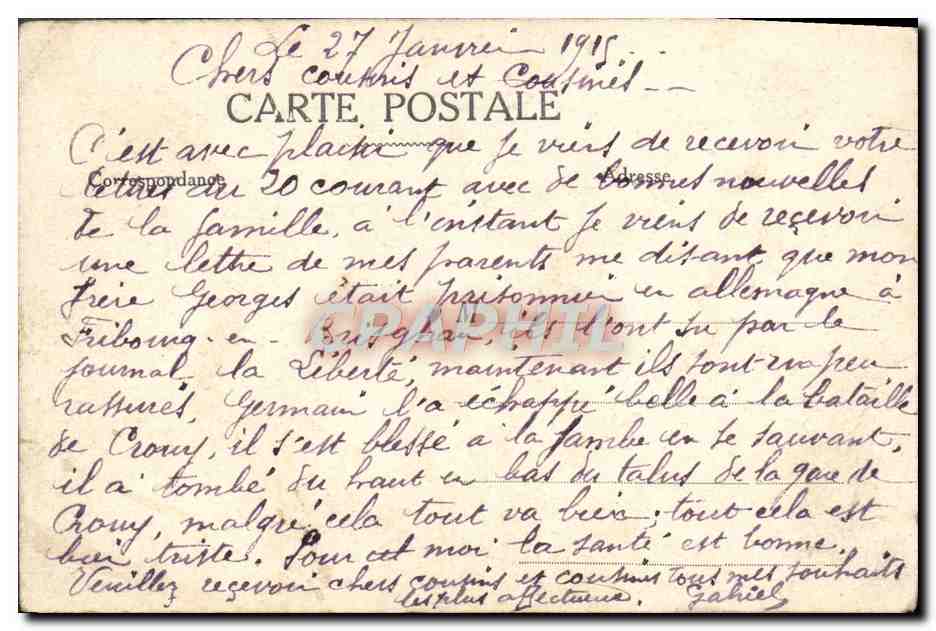 Le 27 Janvier 1915.
Chers cousins et Cousines --
CARTE POSTALE
C'est avec plaisir que je viens de recevoir votre
Correspondance
Adresse
lettres du 20 courant avec de bonnes nouvelles
de la famille, a l'instant je viens de reçevoir
une lettre de mes parents me disant que mon
frère Georges était prisonnier en allemagne à
Fribourg-en-Brisghau, ils l'ont su par le
CPAPHIL
journal la Liberté, maintenant ils sont un peu
rassurés, Germain l'a échappé belle à la bataille
de Crouy, il s'est blessé à la jambe en se sauvant,
il a tombé du haut en bas du talus de la gare de
Crouy, malgré cela tout va bien, tout cela est
bien triste. Pour cet moi la santé est bonne.
Veuillez reçevoir chers cousins et cousines tous mes souhaits
les plus affectueux. Gabriel